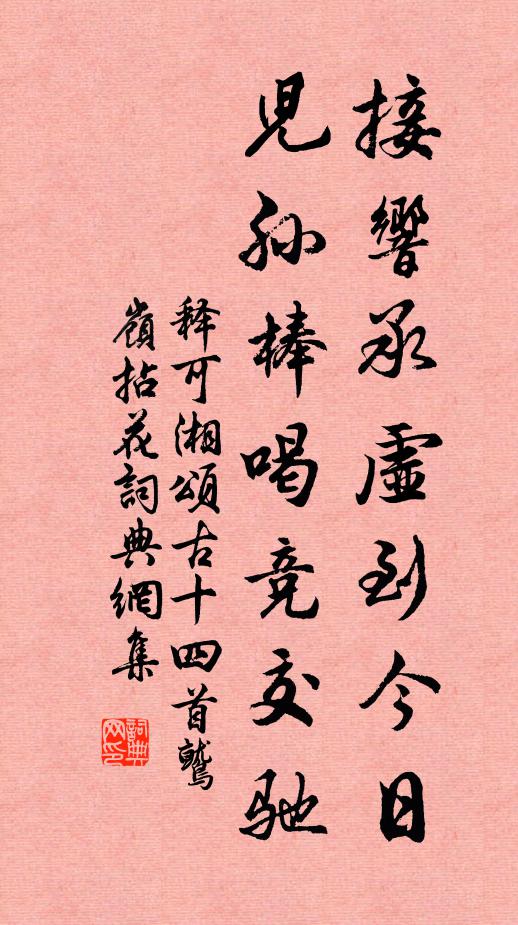 接響承虛到今日
児孫棒喝竞交馳
释可湘頌古十四首鷲
嶺拈花詞典網集
詞典
网印